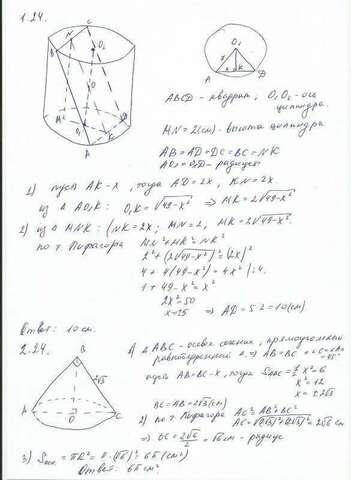 1.24.
ABCD - квадрат; O₁O₂ - ось
цилиндра.
MN = 2(см) - высота цилиндра
AB = AD = DC = BC = NK
AO₁ = O₁D - радиусы
1) пусть AK - x, тогда AD = 2x, KN = 2x
из Δ AO₁K: O₁K = √49-x² ⇒ MK = 2√49-x²
2) из Δ MNK: (NK = 2x; MN = 2, MK = 2√49-x².
по т. Пифагора MN² + MK² = NK²
2² + (2√49-x²)² = (2x)²
4 + 4(49-x²) = 4x² | :4.
1 + 49 - x² = x²
2x² = 50
x = 25 ⇒ AD = 5·2 = 10 (см)
Ответ: 10 см.
2.24.
1) Δ ABC - осевое сечение, прямоугольный
равнобедренный Δ, ⇒ AB = BC
= 45°
пусть AB = BC - x, тогда
x² = 12
x = ± 2√3
BC = AB = 2√3 (см)
2) по т. Пифагора AC² = AB² + BC²
AC = √(2√3)² + (2√3)² = 2√6 см
⇒ OC = 2√6/2 = √6 см - радиус
3) Sосн. = πR² = π·(√6)² = 6π (см²)
Ответ: 6π см²
A
B
C
D
O₁
O
M
N
K
O₁
A
K
D
x
B
2√3
A
O
C